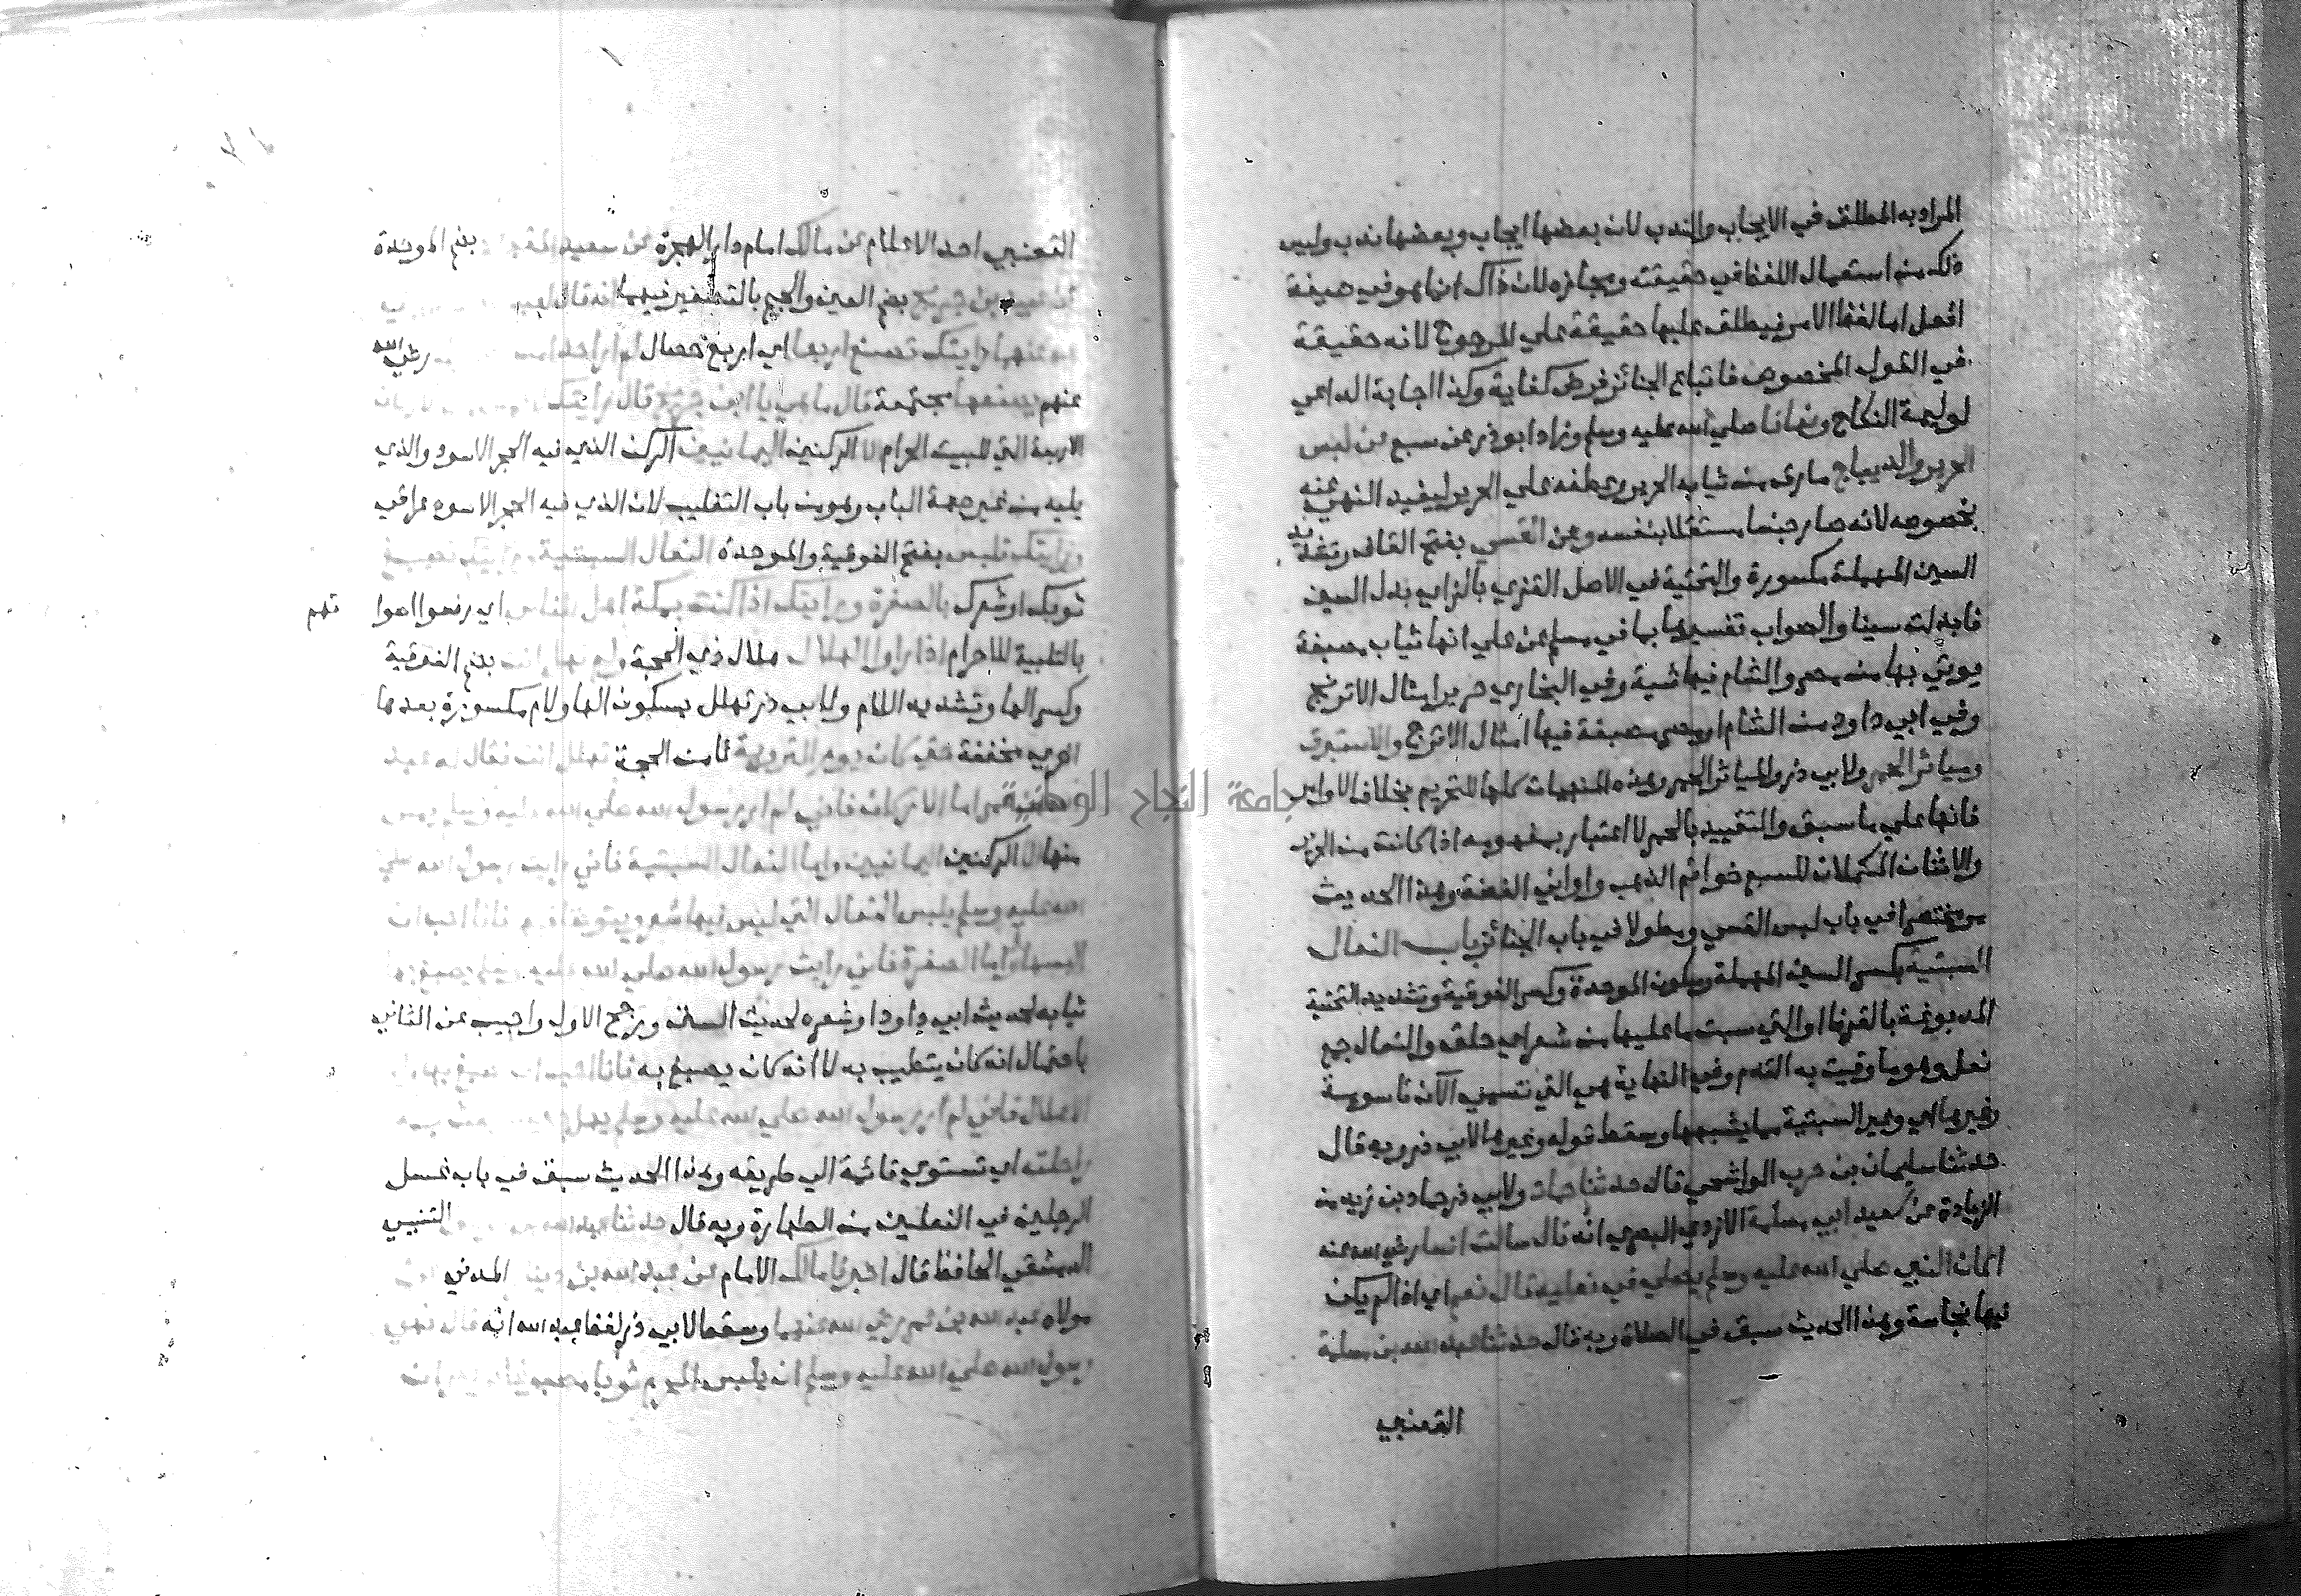 المراد به المطلق في الايجاب والندب لان بعضها ايجاب وبعضها ندب وليس
ذلك من استعمال اللفظ في حقيقته ومجازه لان ذاك انما هو في صيغة
افعل اما لفظ الامر فيطلق عليها حقيقة علي المرجوح لانه حقيقة
في القول المخصوص فاتباع الجنائز فرض كفاية وكذا اجابة الداعي
لوليمة النكاح ونهانا صلي الله عليه وسلم وزاد ابو ذر عن سبع عن لبس
الحرير والديباج مارق من ثياب الحرير وعطفه علي الحرير ليفيد النهي عنه
بخصوصه لانه صار جنسا مستقلا بنفسه وعن القسي بفتح القاف وتشديد
السين المهملة مكسورة والتحتية في الاصل القزي بالزاي بدل السين
فابدلت سينا والصواب تفسيرها بما في مسلم عن علي انها ثياب مضلعة
يوتي بها من مصر والشام فيها شبه وفي البخاري حرير امثال الاترنج
وفي ابي داود من الشام او مصر مضلعة فيها امثال الاترج والاستبرق
ومياثر الحمر ولابي ذر والمياثر الحمر وهذه المنهيات كلها للتحريم بخلاف الاوامر
فانها علي ما سبق والتقييد بالحمر لا اعتبار بمفهومه اذا كانت من الحرير
والاثنان المكملان للسبع خواتم الذهب واواني الفضة وهذا الحديث
مر مختصرا في باب لبس القسي ومطولا في باب الجنائز باب النعال
السبتية بكسر السين المهملة وسكون الموحدة وكسر الفوقية وتشديد التحتية
المدبوغة بالقرظ او التي سبت ما عليها من شعر اي حلق والنعال جمع
نعل وهو ما وقيت به القدم وفي النهاية هي التي تسمي الآن تاسومة
وغيرها اي وغير السبتية مما يشبهها وسقط قوله وغيرها لابي ذر وبه قال
حدثنا سليمان بن حرب الواشحي قال حدثنا حماد ولابي ذر حماد بن زيد من
الزيادة عن سعيد ابي مسلمة الازدي البصري انه قال سالت انسا رضي الله عنه
اكان النبي صلي الله عليه وسلم يصلي في نعليه قال نعم اي اذا لم يكن
فيها نجاسة وهذا الحديث سبق في الصلاة وبه قال حدثنا عبد الله بن مسلمة
القعنبي
القعنبي احد الاعلام عن مالك امام دار الهجرة عن سعيد المقبري بضم الموحدة
عن عبيد بن جريج بضم العين والجيم بالتصغير فيهما انه قال
عنهما رايتك تصنع اربعا اي اربع خصال لم ار احدا رضي الله
عنهم يصنعها مجتمعة قال ما هي يا ابن جريج قال رايتك
الاربعة التي للبيت الحرام الا الركنين اليمانيين الركن الذي فيه الحجر الاسود والذي
يليه من غير جهة الباب وهو من باب التغليب لان الذي فيه الحجر الاسود عراقي
ورايتك تلبس بفتح الفوقية والموحدة النعال السبتية ورايتك تصبغ
ثوبك او شعرك بالصفرة ورايتك اذا كنت بمكة اهل الناس اي رفعوا اصواتهم
بالتلبية للاحرام اذا راوا الهلال هلال ذي الحجة ولم تهل انت بضم الفوقية
وكسر الها وتشديد اللام ولابي ذر تهلل بسكون الها ولام مكسورة بعدها
اخري مخففة حتي كان يوم التروية ثامن الحجة تهلل انت فقال له عبد
الله بن عمر اما الاركان فاني لم ار رسول الله صلي الله عليه وسلم يمس
منها الا الركنين اليمانيين واما النعال السبتية فاني رايت رسول الله صلي
الله عليه وسلم يلبس النعال التي ليس فيها شعر ويتوضا فيها فانا احب ان
البسها واما الصفرة فاني رايت رسول الله صلي الله عليه وسلم يصبغ بها
ثيابه لحديث ابي داود او شعره لحديث السنن ورجح الاول واجيب عن الثاني
باحتمال انه كان يتطيب به لا انه كان يصبغ به فانا احب ان اصبغ بها
الاهلال فاني لم ار رسول الله صلي الله عليه وسلم يهل حتي تنبعث به
راحلته اي تستوي قائمة الي طريقه وهذا الحديث سبق في باب غسل
الرجلين في النعلين من الطهارة وبه قال حدثنا عبد الله التنيسي
الدمشقي الحافظ قال اخبرنا مالك الامام عن عبد الله بن دينار المدني
مولاه عبد الله بن عمر رضي الله عنهما وسقط لابي ذر لفظ عبد الله انه قال نهي
رسول الله صلي الله عليه وسلم ان يلبس المحرم ثوبا مصبوغا بزعفران
جامعة النجاح الوطنية